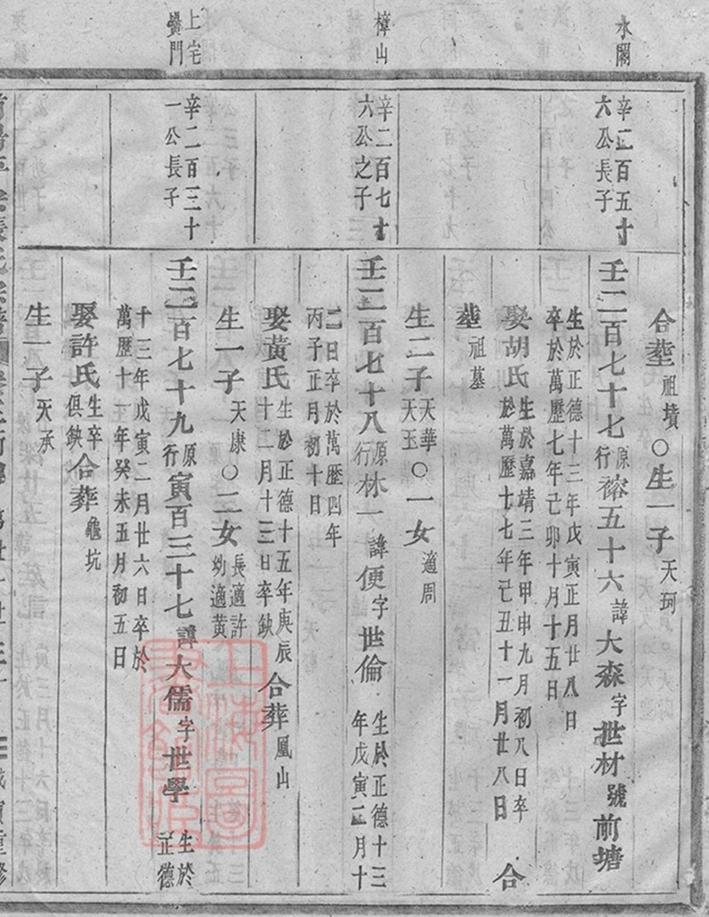 水閣
辛二百五十
六公長子
合塟祖墳○生一子天珂
壬二百七十七原行榕五十六諱大森字世材號前塘
生於正德十三年戊寅正月廿八日
卒於萬歷七年己卯十月十五日
娶胡氏生於嘉靖三年甲申九月初八日卒
於萬歷十七年己丑十一月廿八日 合
塟祖墓
生二子天華天玉○一女適周
樟山
辛二百七十
六公之子
壬二百七十八原行林一諱便字世倫
生於正德十三
年戊寅二月十
二日卒於萬歷四年
丙子正月初十日
娶黃氏生於正德十五年庚辰
十二月十三日卒缺
合葬鳳山
生一子天康○二女長適許幼適黃
上宅
辛二百三十
一公長子
壬二百七十九原行寅百三十七諱大儒字世學
生於
正德
十三年戊寅二月廿六日卒於
萬歷十一年癸未五月初五日
娶許氏生卒俱缺合葬龜坑
生一子天承